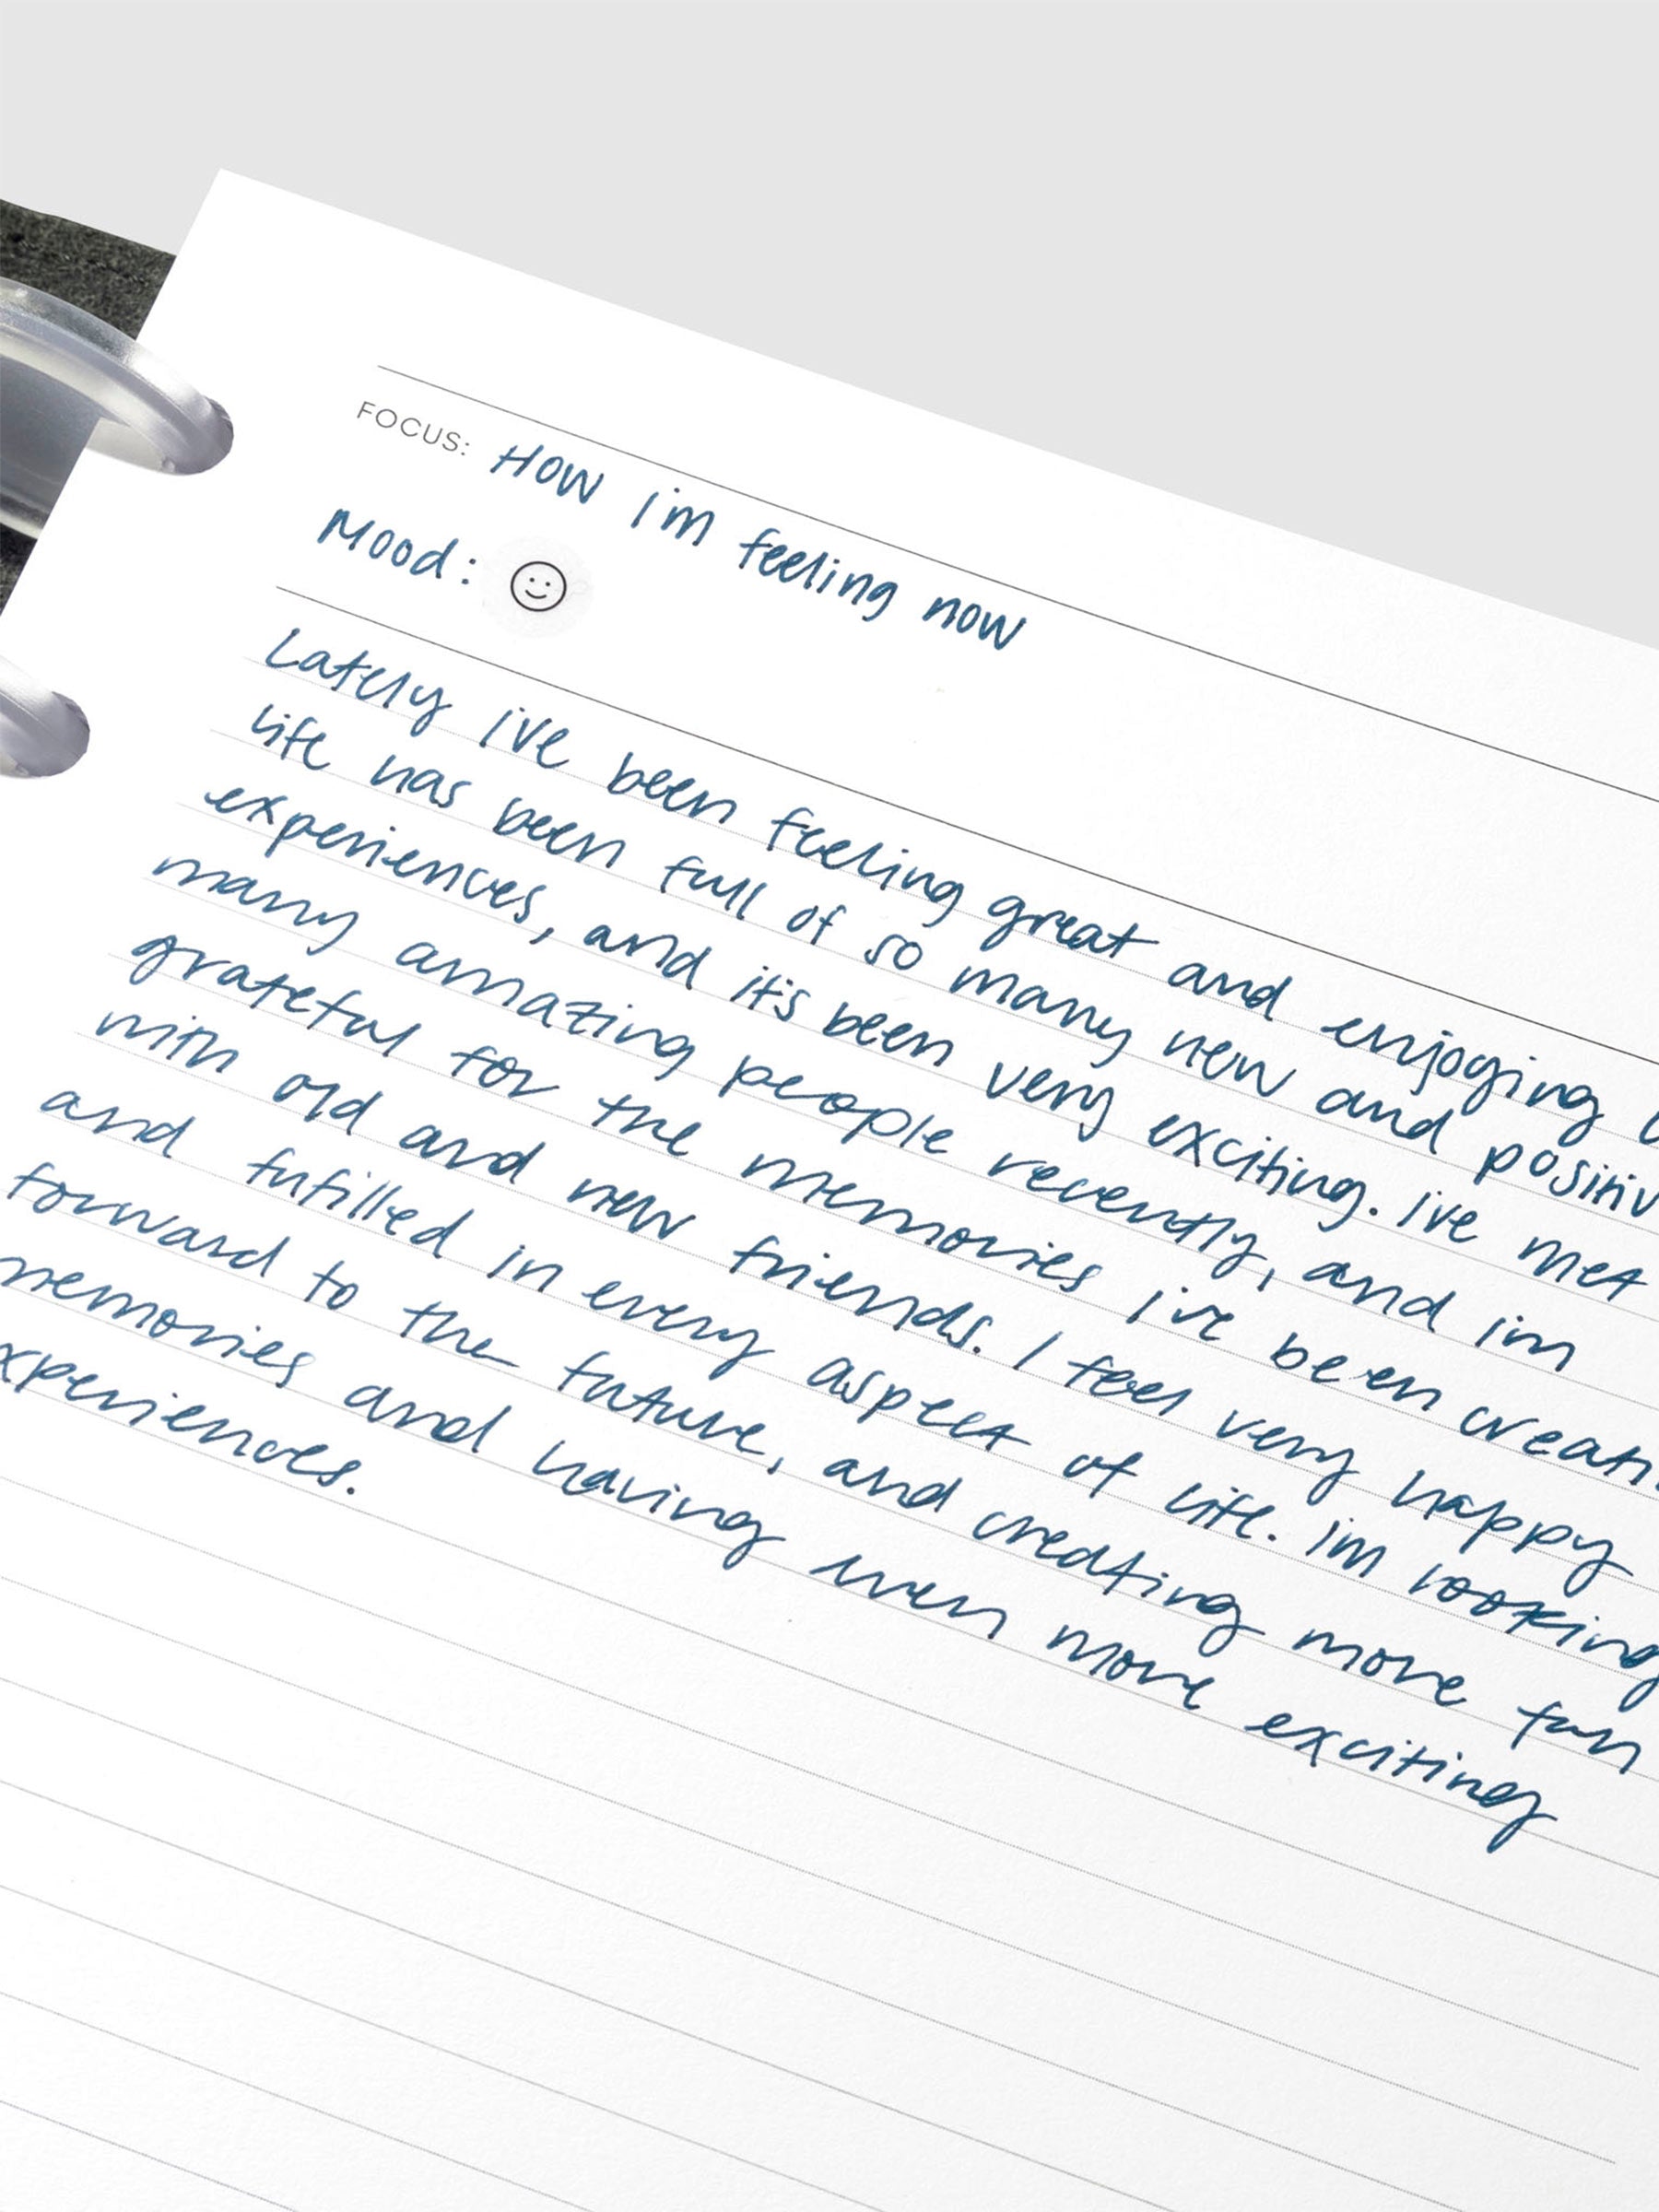 FOCUS: How I'm feeling now
Mood:
Lately I've been feeling great and enjoying
life has been full of so many new and positiv
experiences, and it's been very exciting. I've met
many amazing people recently, and im
grateful for the memories I've been creati
with old and new friends. I feel very happy
and fufilled in every aspect of life. Im looking
forward to the future, and creating more fun
memories and having even more exciting
xperiences.